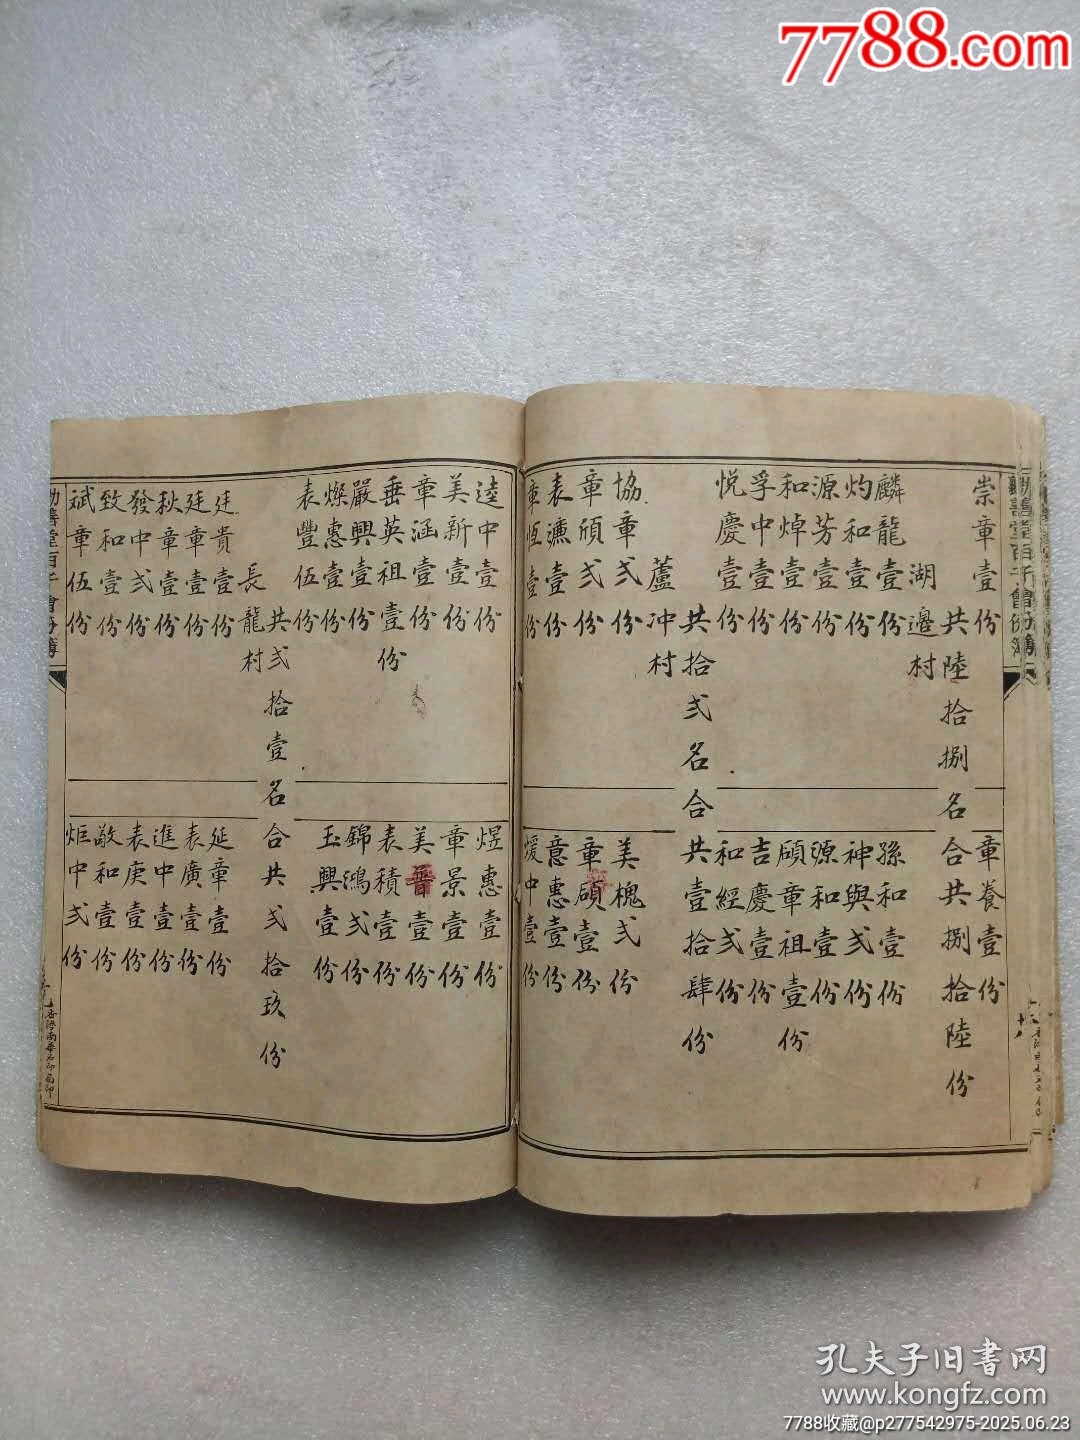 7788.com
勸善堂百子會份簿
崇章壹份
章養壹份
共陸拾捌名合共捌拾陸份
湖邊村
麟龍壹份
孫和壹份
灼和壹份
神與弍份
源芳壹份
源和壹份
和焯壹份
頎章祖壹份
孚中壹份
吉慶壹份
悅慶壹份
和經弍份
共拾弍名合共壹拾肆份
蘆冲村
協章弍份
美槐弍份
章頎弍份
章碩壹份
表濂壹份
意惠壹份
章恆壹份
煖中壹份
逵中壹份
煜惠壹份
美新壹份
章景壹份
章涵壹份
美晉壹份
垂英祖壹份
表積壹份
嚴興壹份
錦鴻弍份
燦惠壹份
玉興壹份
表豐伍份
共弍拾壹名合共弍拾玖份
長龍村
廷貴壹份
延章壹份
廷章壹份
表廣壹份
秋章壹份
進中壹份
發中弍份
表庚壹份
致和壹份
敬和壹份
斌章伍份
炬中弍份
孔夫子旧书网
www.kongfz.com
7788收藏@p277542975-2025.06.23